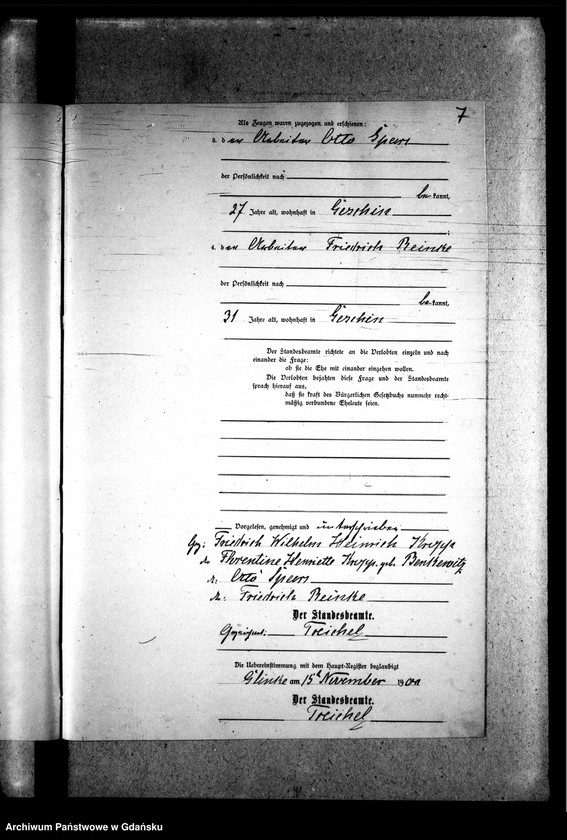 7
Als Zeugen waren zugezogen und erschienen:
1. der Arbeiter Otto Speer
der Persönlichkeit nach
bekannt,
27 Jahre alt, wohnhaft in Geschin
;
2. der Arbeiter Friedrich Reinke
der Persönlichkeit nach
bekannt,
31 Jahre alt, wohnhaft in Geschin
Der Standesbeamte richtete an die Verlobten einzeln und nach
einander die Frage:
ob sie die Ehe mit einander eingehen wollen.
Die Verlobten bejahten diese Frage und der Standesbeamte
sprach hierauf aus,
daß sie kraft des Bürgerlichen Gesetzbuchs nunmehr recht-
mäßig verbundene Eheleute seien.
Vorgelesen, genehmigt und unterschrieben
Gez: Friedrich Wilhelm Heinrich
Florentine Henriette geb.
Otto Speer
Friedrich Reinke
Der Standesbeamte.
Gezeichnet: Treichel
Die Uebereinstimmung mit dem Haupt-Register beglaubigt
Glinke am 15t November 190
Der Standesbeamte.
Treichel
Archiwum Państwowe w Gdańsku